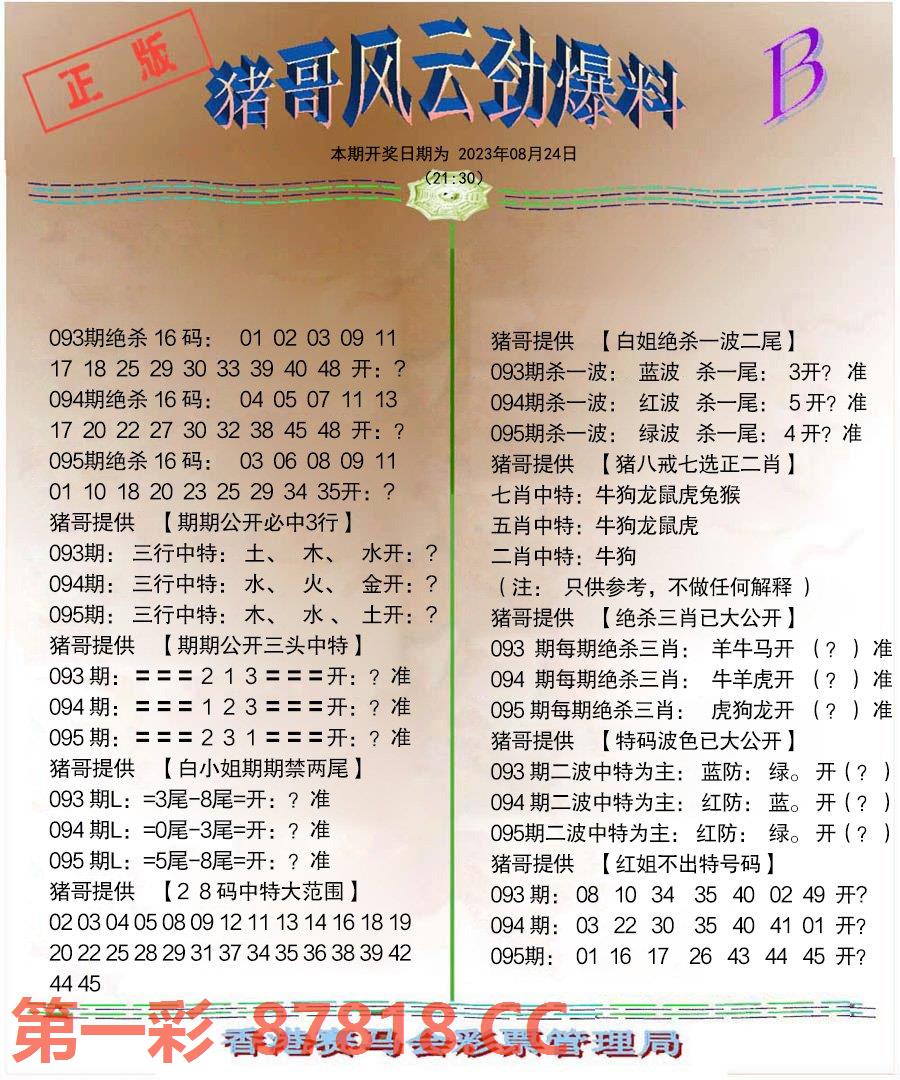 正版
猪哥风云劲爆料
B
本期开奖日期为 2023年08月24日
(21:30)
093期绝杀 16 码： 01 02 03 09 11
17 18 25 29 30 33 39 40 48 开：?
094期绝杀 16 码： 04 05 07 11 13
17 20 22 27 30 32 38 45 48 开：?
095期绝杀 16 码： 03 06 08 09 11
01 10 18 20 23 25 29 34 35开：?
猪哥提供 【期期公开必中3行】
093期： 三行中特： 土、 木、 水开：?
094期： 三行中特： 水、 火、 金开：?
095期： 三行中特： 木、 水 、 土开：?
猪哥提供 【期期公开三头中特】
093 期：===2 1 3===开：? 准
094 期：===1 2 3===开：? 准
095 期：===2 3 1===开：? 准
猪哥提供 【白小姐期期禁两尾】
093 期L：=3尾-8尾=开：? 准
094 期L：=0尾-3尾=开：? 准
095 期L：=5尾-8尾=开：? 准
猪哥提供 【2 8 码中特大范围】
02 03 04 05 08 09 12 11 13 14 16 18 19
20 22 25 28 29 31 37 34 35 36 38 39 42
44 45
猪哥提供 【白姐绝杀一波二尾】
093期杀一波： 蓝波 杀一尾： 3开? 准
094期杀一波： 红波 杀一尾： 5 开? 准
095期杀一波： 绿波 杀一尾： 4 开? 准
猪哥提供 【猪八戒七选正二肖】
七肖中特：牛狗龙鼠虎兔猴
五肖中特：牛狗龙鼠虎
二肖中特：牛狗
（注： 只供参考，不做任何解释 ）
猪哥提供 【绝杀三肖已大公开】
093 期每期绝杀三肖： 羊牛马开 （? ）准
094 期每期绝杀三肖： 牛羊虎开 （? ）准
095 期每期绝杀三肖： 虎狗龙开 （? ）准
猪哥提供 【特码波色已大公开】
093 期二波中特为主： 蓝防： 绿。 开（? ）
094 期二波中特为主： 红防： 蓝。 开（? ）
095期二波中特为主： 红防： 绿。 开（? ）
猪哥提供 【红姐不出特号码】
093 期： 08 10 34 35 40 02 49 开?
094 期： 03 22 30 35 40 41 01 开?
095期： 01 16 17 26 43 44 45 开?
第一彩 87818.CC
香港赛马会彩票管理局